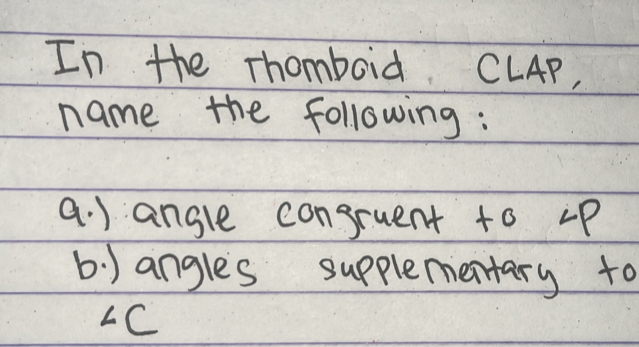 In the rhomboid CLAP,
name the following:
a.) angle congruent to ∠P
b.) angles supplementary to
∠C